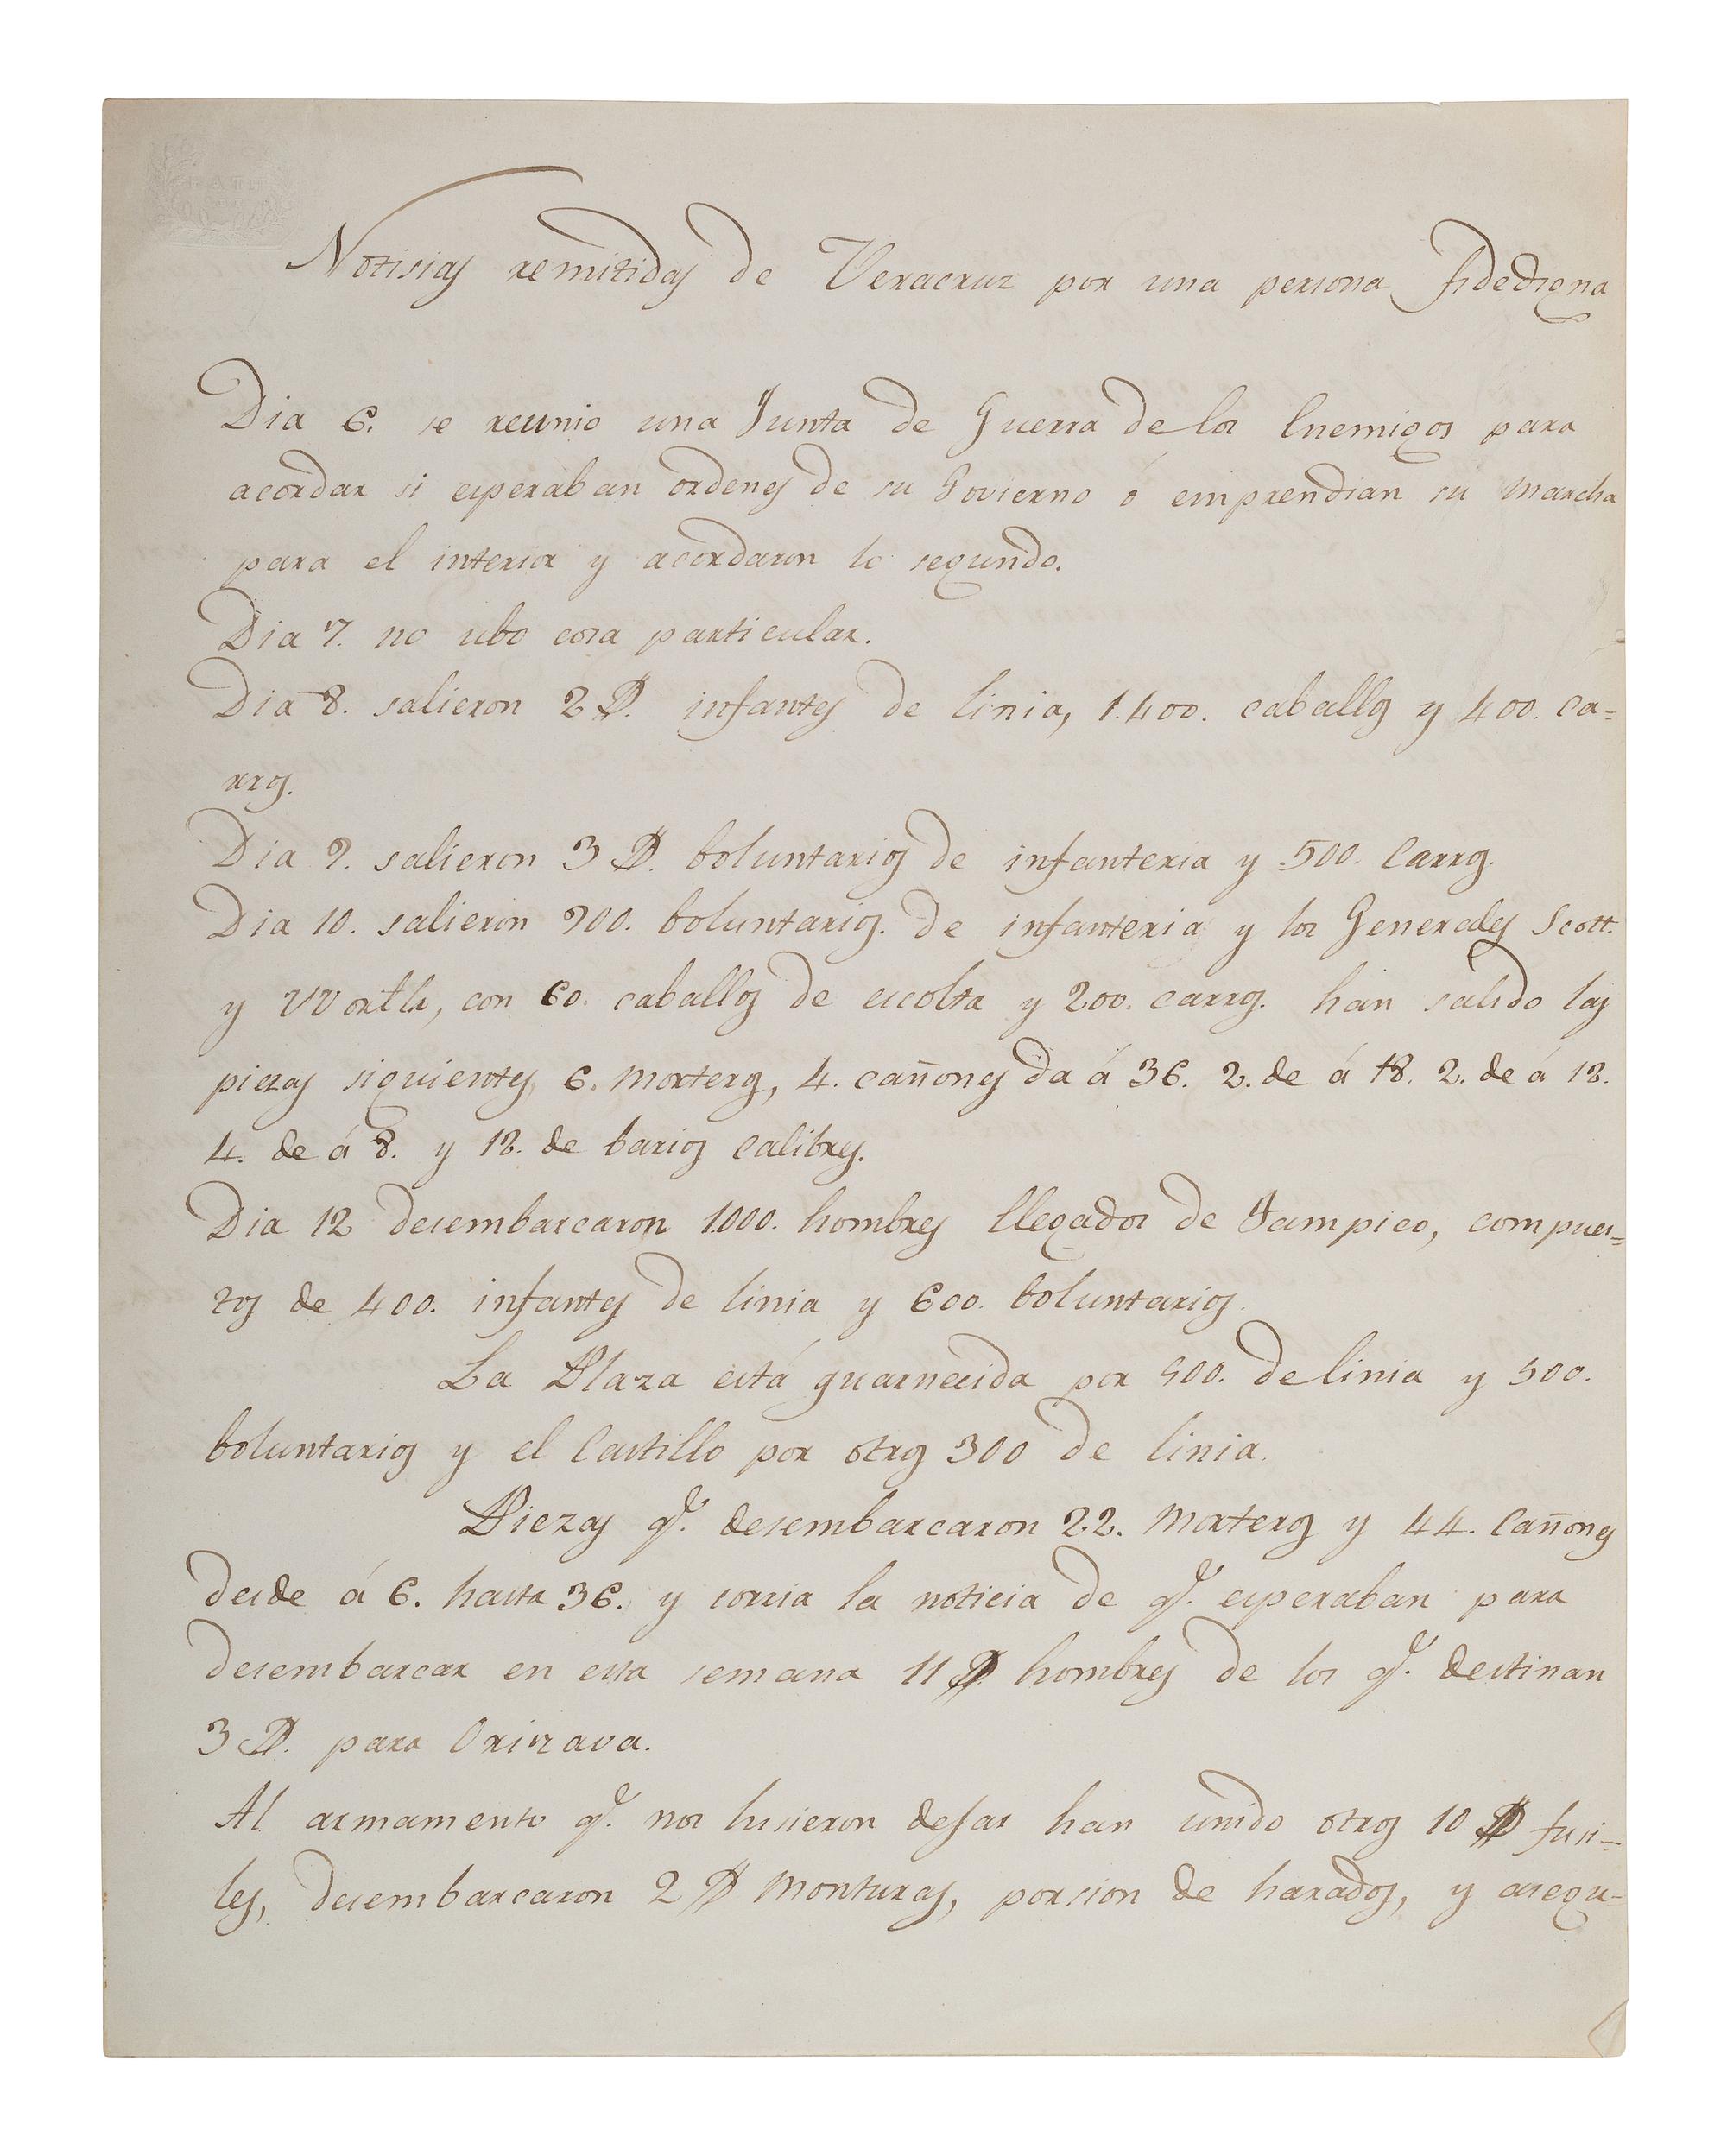 Notisias remitidas de Veracruz por una persona fidedigna
Dia 6. se reunio una Junta de Guerra de los Enemigos para
acordar si esperaban ordenes de su Govierno ó emprendian su marcha
para el interior y acordaron lo segundo.
Dia 7. no ubo cosa particular.
Dia 8. salieron 2 D. infantes de linia, 1.400. caballos y 400. ca=
rros.
Dia 9. salieron 3 D. boluntarios de infanteria y 500. Carros.
Dia 10. salieron 900. boluntarios. de infanteria y los Generales Scott.
y VVorth, con 60. caballos de escolta y 200. carros. han salido las
piezas siguientes, 6. morteros, 4. cañones da á 36. 2. de á 18. 2. de á 12.
4. de á 8. y 12. de barios calibres.
Dia 12 desembarcaron 1000. hombres llegados de Tampico, compues=
tos de 400. infantes de linia y 600. boluntarios.
La Plaza está guarnecida por 500. de linia y 500.
boluntarios y el Castillo por otros 300 de linia.
Piezas q.e desembarcaron 22. Morteros y 44. Cañones
desde á 6. hasta 36. y corria la noticia de q.e esperaban para
desembarcar en esta semana 11 D hombres de los q.e destinan
3 D. para Orizava.
Al armamento q.e nos hisieron dejar han unido otros 10 D fusi=
les, desembarcaron 2 D monturas, porsion de harados, y asegu=